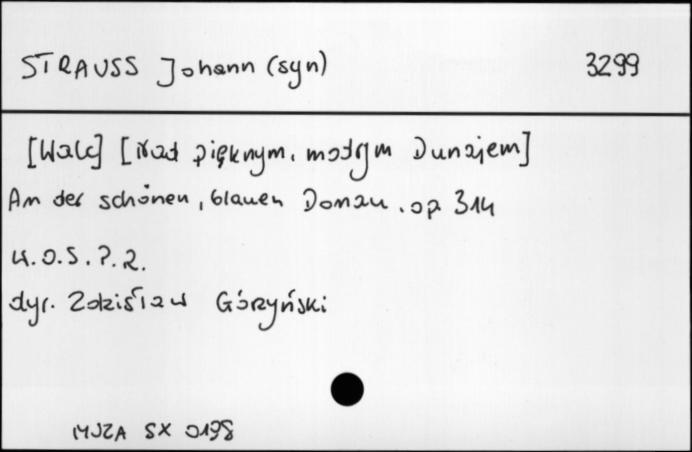 STRAUSS Johann (syn) 3299
[Walc] [Nad pięknym, modrym Dunajem]
An der schönen, blauen Donau. op 314
W.O.S.P.R.
dyr. Zdzisław Górzyński
MUZA SX 0198